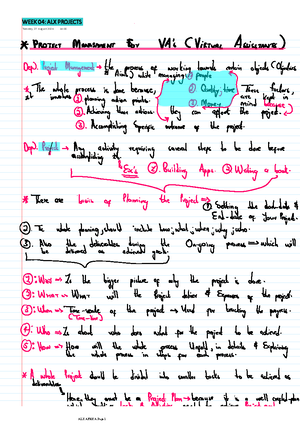 WEEK 04: ALX PROJECTS
* PROJECT MANAGEMENT FOR VA's (VIRTUAL ASSISTANTS)
Def) Project Management → the process of working towards certain objects (Objectives
& Aims) while managing ① people
* The whole process is done because, ② Quality, time These factors,
it involves ① planning action points. ③ Money kept in mind because
② Achieving those actions they can affect the project.
③ Accomplishing Specific outcome of the project.
Def) Project → Any activity requiring several steps to be done before
accomplishing it.
Ex's ② Building Apps. ③ Writing a book.
* There are basics of Planning the Project ⇒ ① Setting the start-date &
End-date of your Project.
② The whole planning, should include how, what, when, why, who.
③ Also the deliverables during the Ongoing process which will
be delivered as
①: WHY ⇒ Is the bigger picture of why the project is done.
②: WHAT ⇒ What will the Project deliver & Expenses of the project.
③: When ⇒ Time-scale of the project → Used for tracking the progress.
(Time-line)
④: Who ⇒ Is about who does what for the project to be achieved.
⑤: How ⇒ How will the whole process Unfold, in details & Explaining
the whole process in steps for each process.
* A whole Project should be divided into smaller tasks to be achieved as
deliverables
Hence, they must be a Project Plan → because it is a well
ALX AFRICA Page 1